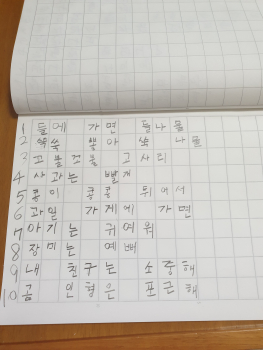 1 들에 가면 들나물
2 쑥쑥 뽑아 쑥 나물
3 고불고불 고사리
4 사과는 빨개
5 콩이 콩콩 뛰어서
6 과일 가게에 가면
7 아기는 귀여워
8 장미는 예뻐
9 내 친구는 소중해
10 곰 인형은 포근해